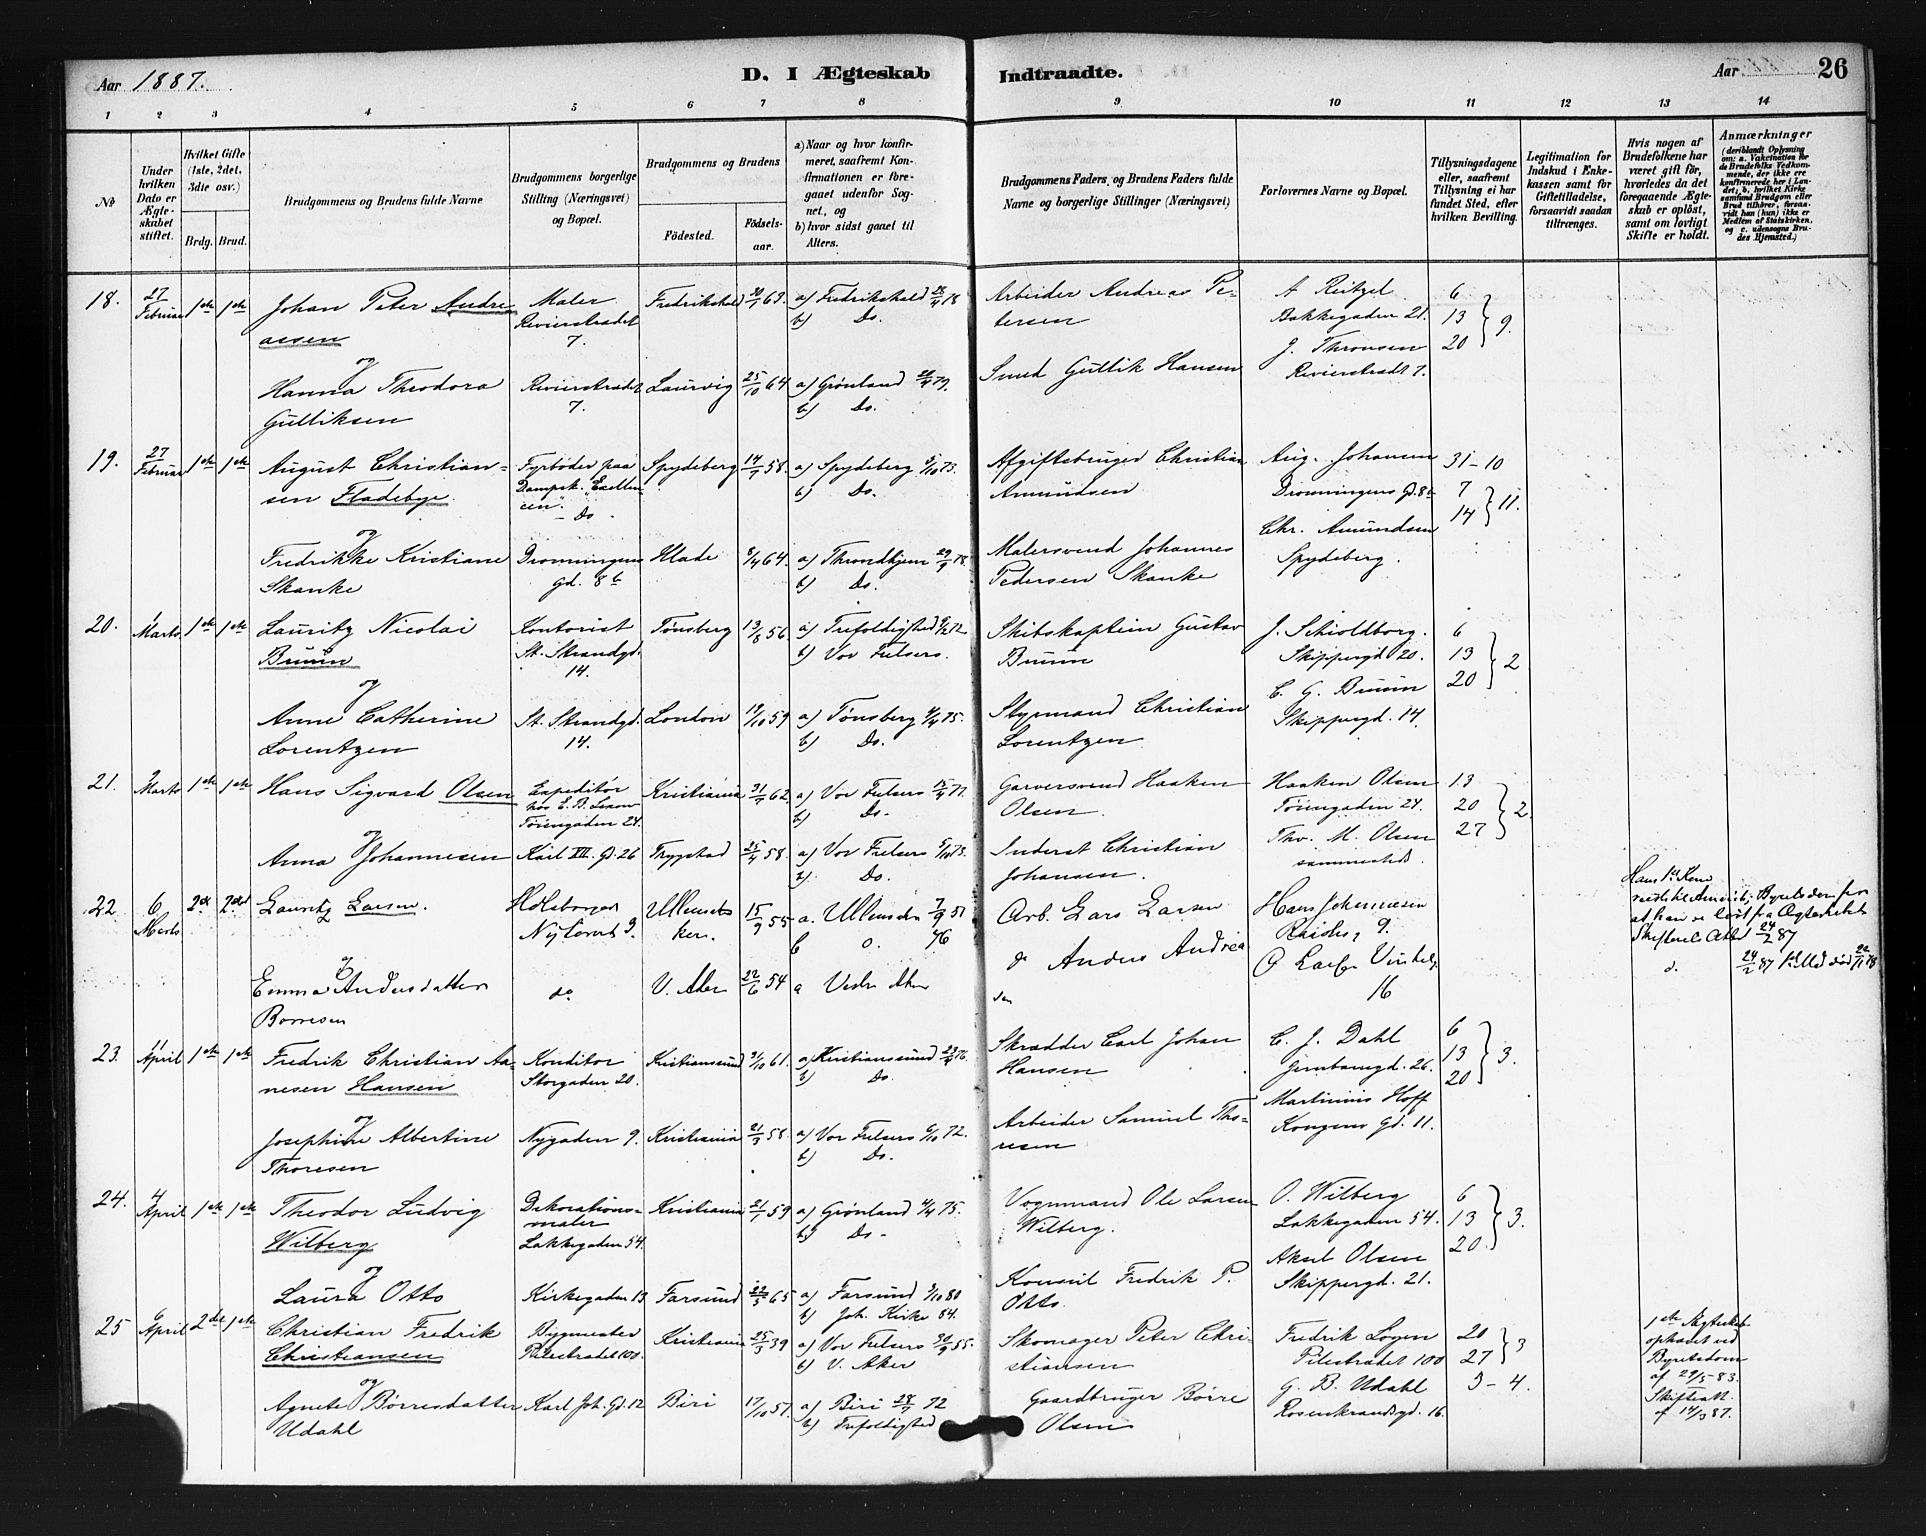 Aar 1887.
D. I Ægteskab
Indtraadte.
Aar
26
1 2 3 4 5 6 7 8 9 10 11 12 13 14
No
Under hvilken Dato er Ægteskabet stiftet.
Hvilket Gifte (1ste, 2det, 3die osv.)
Brdg. Brud.
Brudgommens og Brudens fulde Navne
Brudgommens borgerlige Stilling (Næringsvei) og Bopæl.
Brudgommens og Brudens
Fødested.
Fødselsaar.
a) Naar og hvor konfirmeret, saafremt Konfirmationen er foregaaet udenfor Sognet, og
b) hvor sidst gaaet til Alters.
Brudgommens Faders, og Brudens Faders fulde Navne og borgerlige Stillinger (Næringsvei)
Forlovernes Navne og Bopæl.
Tillysningsdagene eller, saafremt Tillysning ei har fundet Sted, efter hvilken Bevilling.
Legitimation for Indskud i Enkekassen samt for Giftetilladelse, forsaavidt saadan tiltrænges.
Hvis nogen af Brudefolkene har været gift før, hvorledes da det foregaaende Ægteskab er opløst, samt om lovligt Skifte er holdt.
Anmærkninger
(deriblandt Oplysning om: a. Vakcination for de Brudefolks Vedkommende, der ikke ere konfirmerede her i Landet; b. hvilket Kirkesamfund Brudgom eller Brud tilhører, forsaavidt han (hun) ikke er Medlem af Statskirken, og c. udensogns Brudes Hjemsted.)
18. 27 Februar 1ste 1ste Johan Peter Andreassen Maler Revierstrædet 7. Fredrikshald 63. a) Fredrikshald 78 b) Do. Arbeider Andreas Petersen A Reitzel Bakkegaden 21. J. Thronsen Revierstrædt 7. 6 13 20 } 9.
og
Hanna Theodora Gulliksen Revierstrædet 7. Laurvig 25/10 64 a) Grønland 79. b) Do. Smed Gullik Hansen
19. 27 Februar 1ste 1ste August Christiansen Fladebye. Fyrbøder paa Dampsk. "Excellencen" Do. Spydeberg 14/7 58. a) Spydeberg 5/10 73. b) Do. Afgiftsbruger Christian Amundsen Aug. Johansen Dronningens Gd. 8b Chr. Amundsen Spydeberg. 31-10 7 14 } 11.
og
Fredrikke Kristiane Skanke Dronningens gd. 8b Hlade 8/4 64. a) Throndhjem 29/9 78. b) Do. Malersvend Johannes Pedersen Skanke
20. 1 Marts 1ste 1ste Lauritz Nicolai Bruun Kontorist St. Strandgd. 14. Tønsberg 13/5 56. a) Trefoldighed 72 b) Vor Frelsers. Skibskaptein Gustav Bruun J. Schioldborg. Skippergd 20. C. G. Bruun Skippergd. 14. 6 13 20 } 2
og
Anne Catherine Lorentzen St. Strandgd. 14. London 19/10 59 a) Tønsberg 4/4 75. b) Do. Styrmand Christian Lorentzen
21. 2 Marts 1ste 1ste Hans Sigvard Olsen Expeditør hos E. B. Tøiengaden 24. Kristiania 31/7 62. a) Vor Frelsers 15/4 77. b) Do. Garversvend Haaken Olsen. Haakon Olsen Tøiengaden 24. Thv. M. Olsen sammesteds. 13 20 27 } 2.
og
Anna Johannesen Karl XII. Gd. 26 Trygstad 25/4 58. a) Vor Frelsers 5/10 73. b) Do. Inderst Christian Johansen.
22 6 Marts 2det 2det Lauritz Larsen. Ullensaker. 15/9 55 a. Ullensaker b o. Arb. Lars Larsen Hans Johannesen 9.
Skiftere Attest 24/2 87
og
Emma Andersdatter Borresen do V. Aker 22/6 54 a Vestre Aker do Anders Andreasen O Larsen 16 d. 24/2 87 død 22/11 78
23. 11 April 1ste 1ste Fredrik Christian Aanesen Hansen Konditor Storgaden 20. Kristianssund 3/10 61. a) Kristianssund 76. b) Do. Skrædder Carl Johan Hansen C. J. Dahl Grubbegd. 26. Martinius Hoff Kongens Gd. 11. 6 13 20 } 3.
og
Josephine Albertine Thoresen Nygaden 9. Kristiania 21/3 58. a) Vor Frelsers 6/10 72. b) Do. Arbeider Samuel Thoresen
24. 4 April 1ste 1ste Theodor Ludvig Wilberg Dekorationsmaler Lakkegaden 54. Kristiania 21/1 59 a) Grønland 4/4 75. b) Do. Vognmand Ole Larsen Wilberg. O. Wilberg Lakkegaden 54. Aksel Olsen Skippergd. 21. 6 13 20 } 3.
og
Laura Otto Kirkegaden 13 Farsund 22/5 65 a) Farsund 3/10 80 b) Joh. Kirke 84. Konsul Fredrik P. Otto.
25 6 April 2det 1ste Christian Fredrik Christiansen Bygmester Pilestrædet 100. Kristiania 25/3 39 a) Vor Frelsers 30/9 55. b) V. Aker Skomager Peter Christiansen Fredrik Logen Pilestrædet 100 G. B. Udahl Rosenkrandsgd. 16. 20 27 } 3 3-4.
1ste Ægteskab ophævet ved Byretsdom af 29/5-83. Skifteatt. af 14/3 87.
og
Agnete Børresdatter Udahl Karl Joh. Gd. 12 Biri 17/10 51. a) Biri 28/7 72 b) Trefoldighed Gaardbruger Børre Olsen